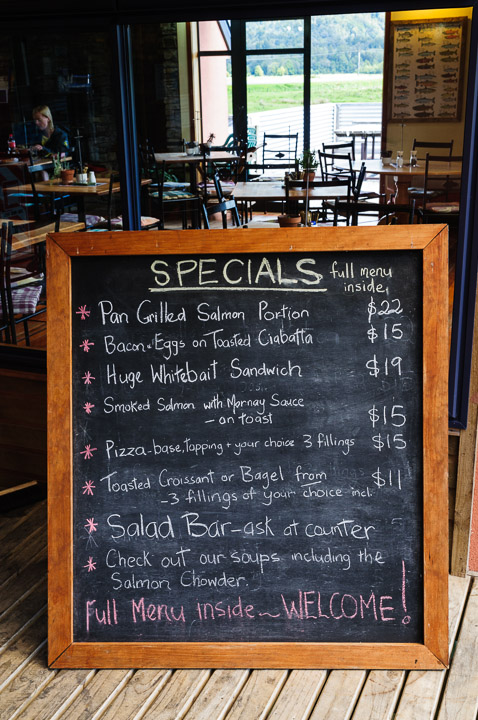 SPECIALS full menu
inside
* Pan Grilled Salmon Portion $22
* Bacon & Eggs on Toasted Ciabatta $15
* Huge Whitebait Sandwich $19
* Smoked Salmon with Mornay Sauce
- on toast $15
* Pizza-base, topping + your choice 3 fillings $15
* Toasted Croissant or Bagel from $11
-3 fillings of your choice incl.
* Salad Bar-ask at counter
* Check out our soups including the
Salmon Chowder.
Full Menu inside~WELCOME!